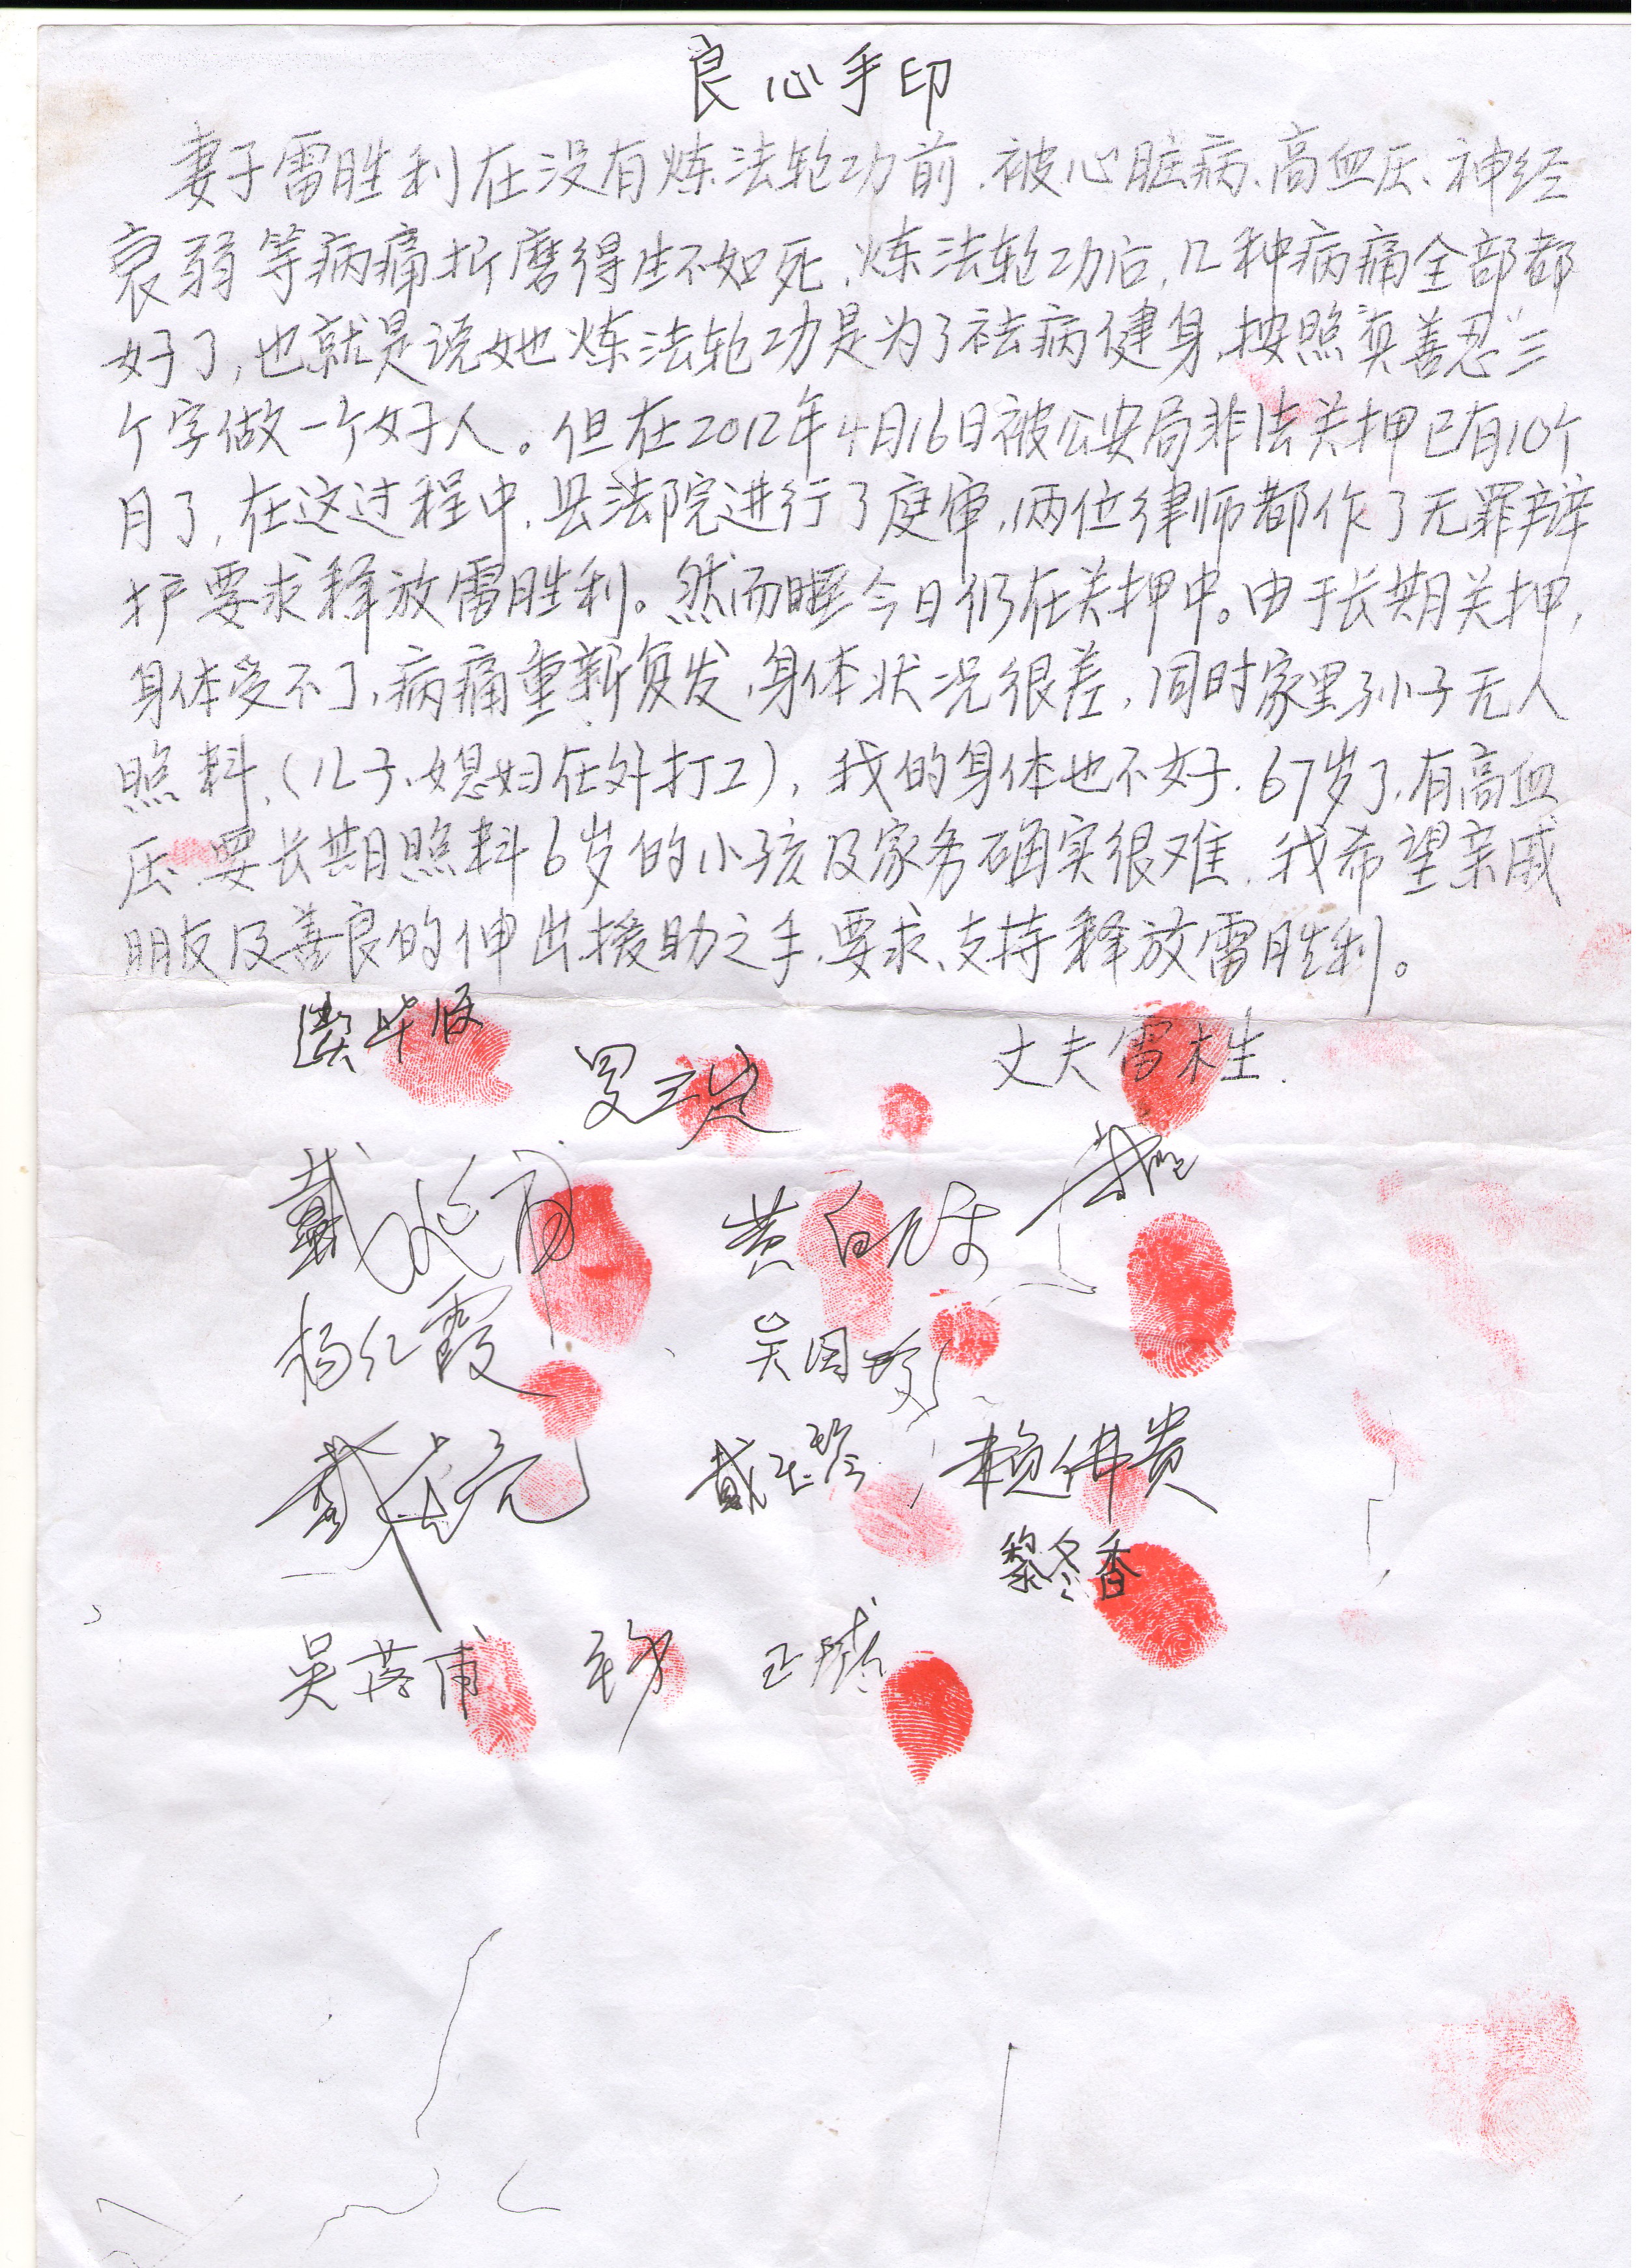 良心手印
妻子雷胜利在没有炼法轮功前、被心脏病、高血压、神经
衰弱等病痛折磨得生不如死、炼法轮功后,几种病痛全部都
好了,也就是说她炼法轮功是为了祛病健身,按照"真善忍"三
个字做一个好人。但在2012年4月16日被公安局非法关押已有10个
月了,在这过程中,县法院进行了庭审,两位律师都作了无罪辩
护要求释放雷胜利。然而 今日仍在关押中。由于长期关押,
身体受不了,病痛重新复发,身体状况很差,同时家里孙子无人
照料、(儿子、媳妇在外打工),我的身体也不好、67岁了,有高血
压、要长期照料6岁的小孩及家务确实很难、我希望亲戚
朋友及善良的伸出援助之手、要求、支持释放雷胜利。
丈夫雷木生.
杨红霞
戴玉琴 赖佛贵
黎冬香